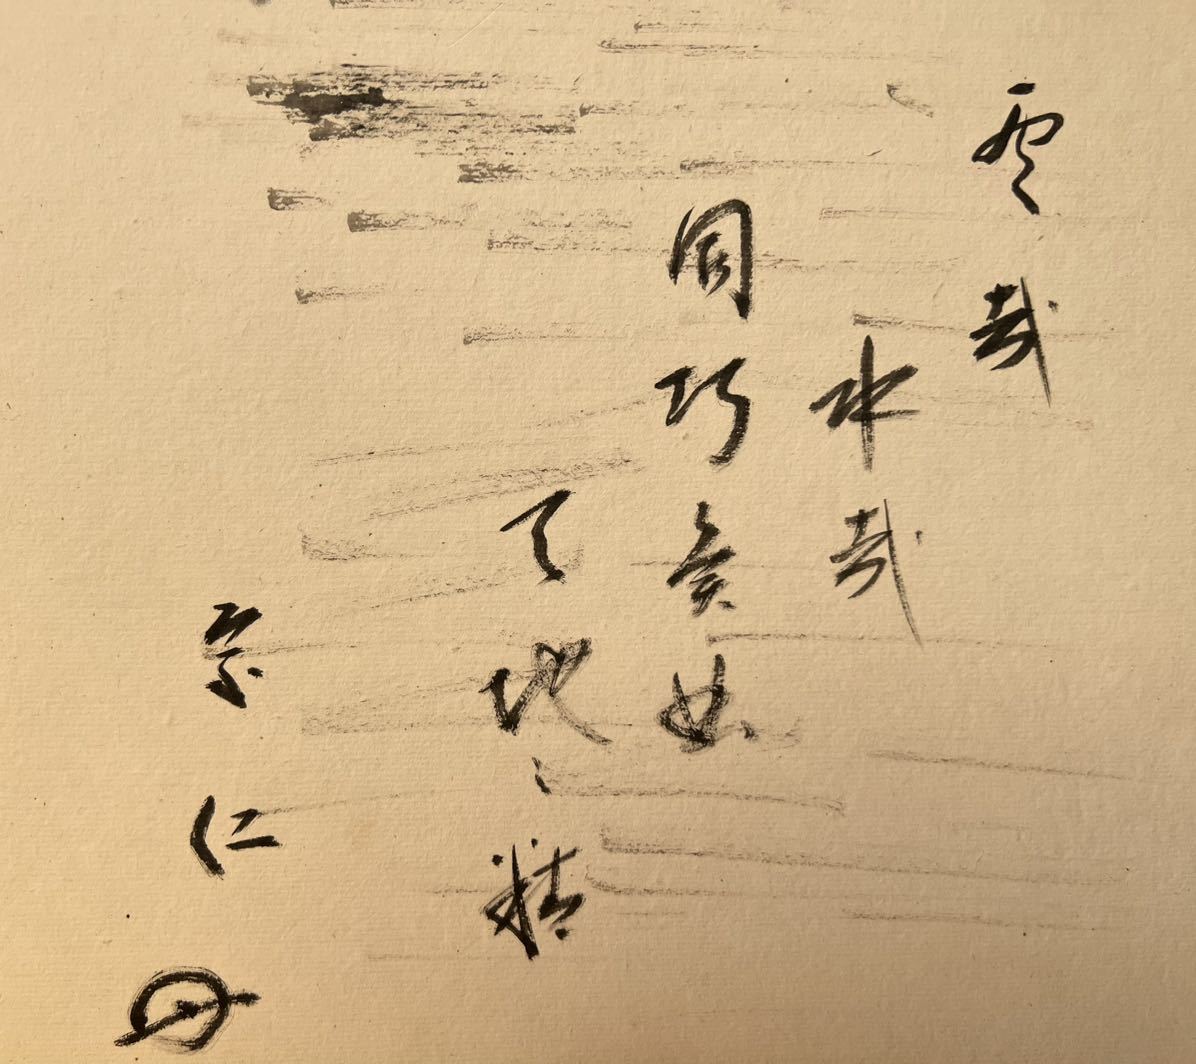 雲哉
水哉
同巧
天地之精
宗仁